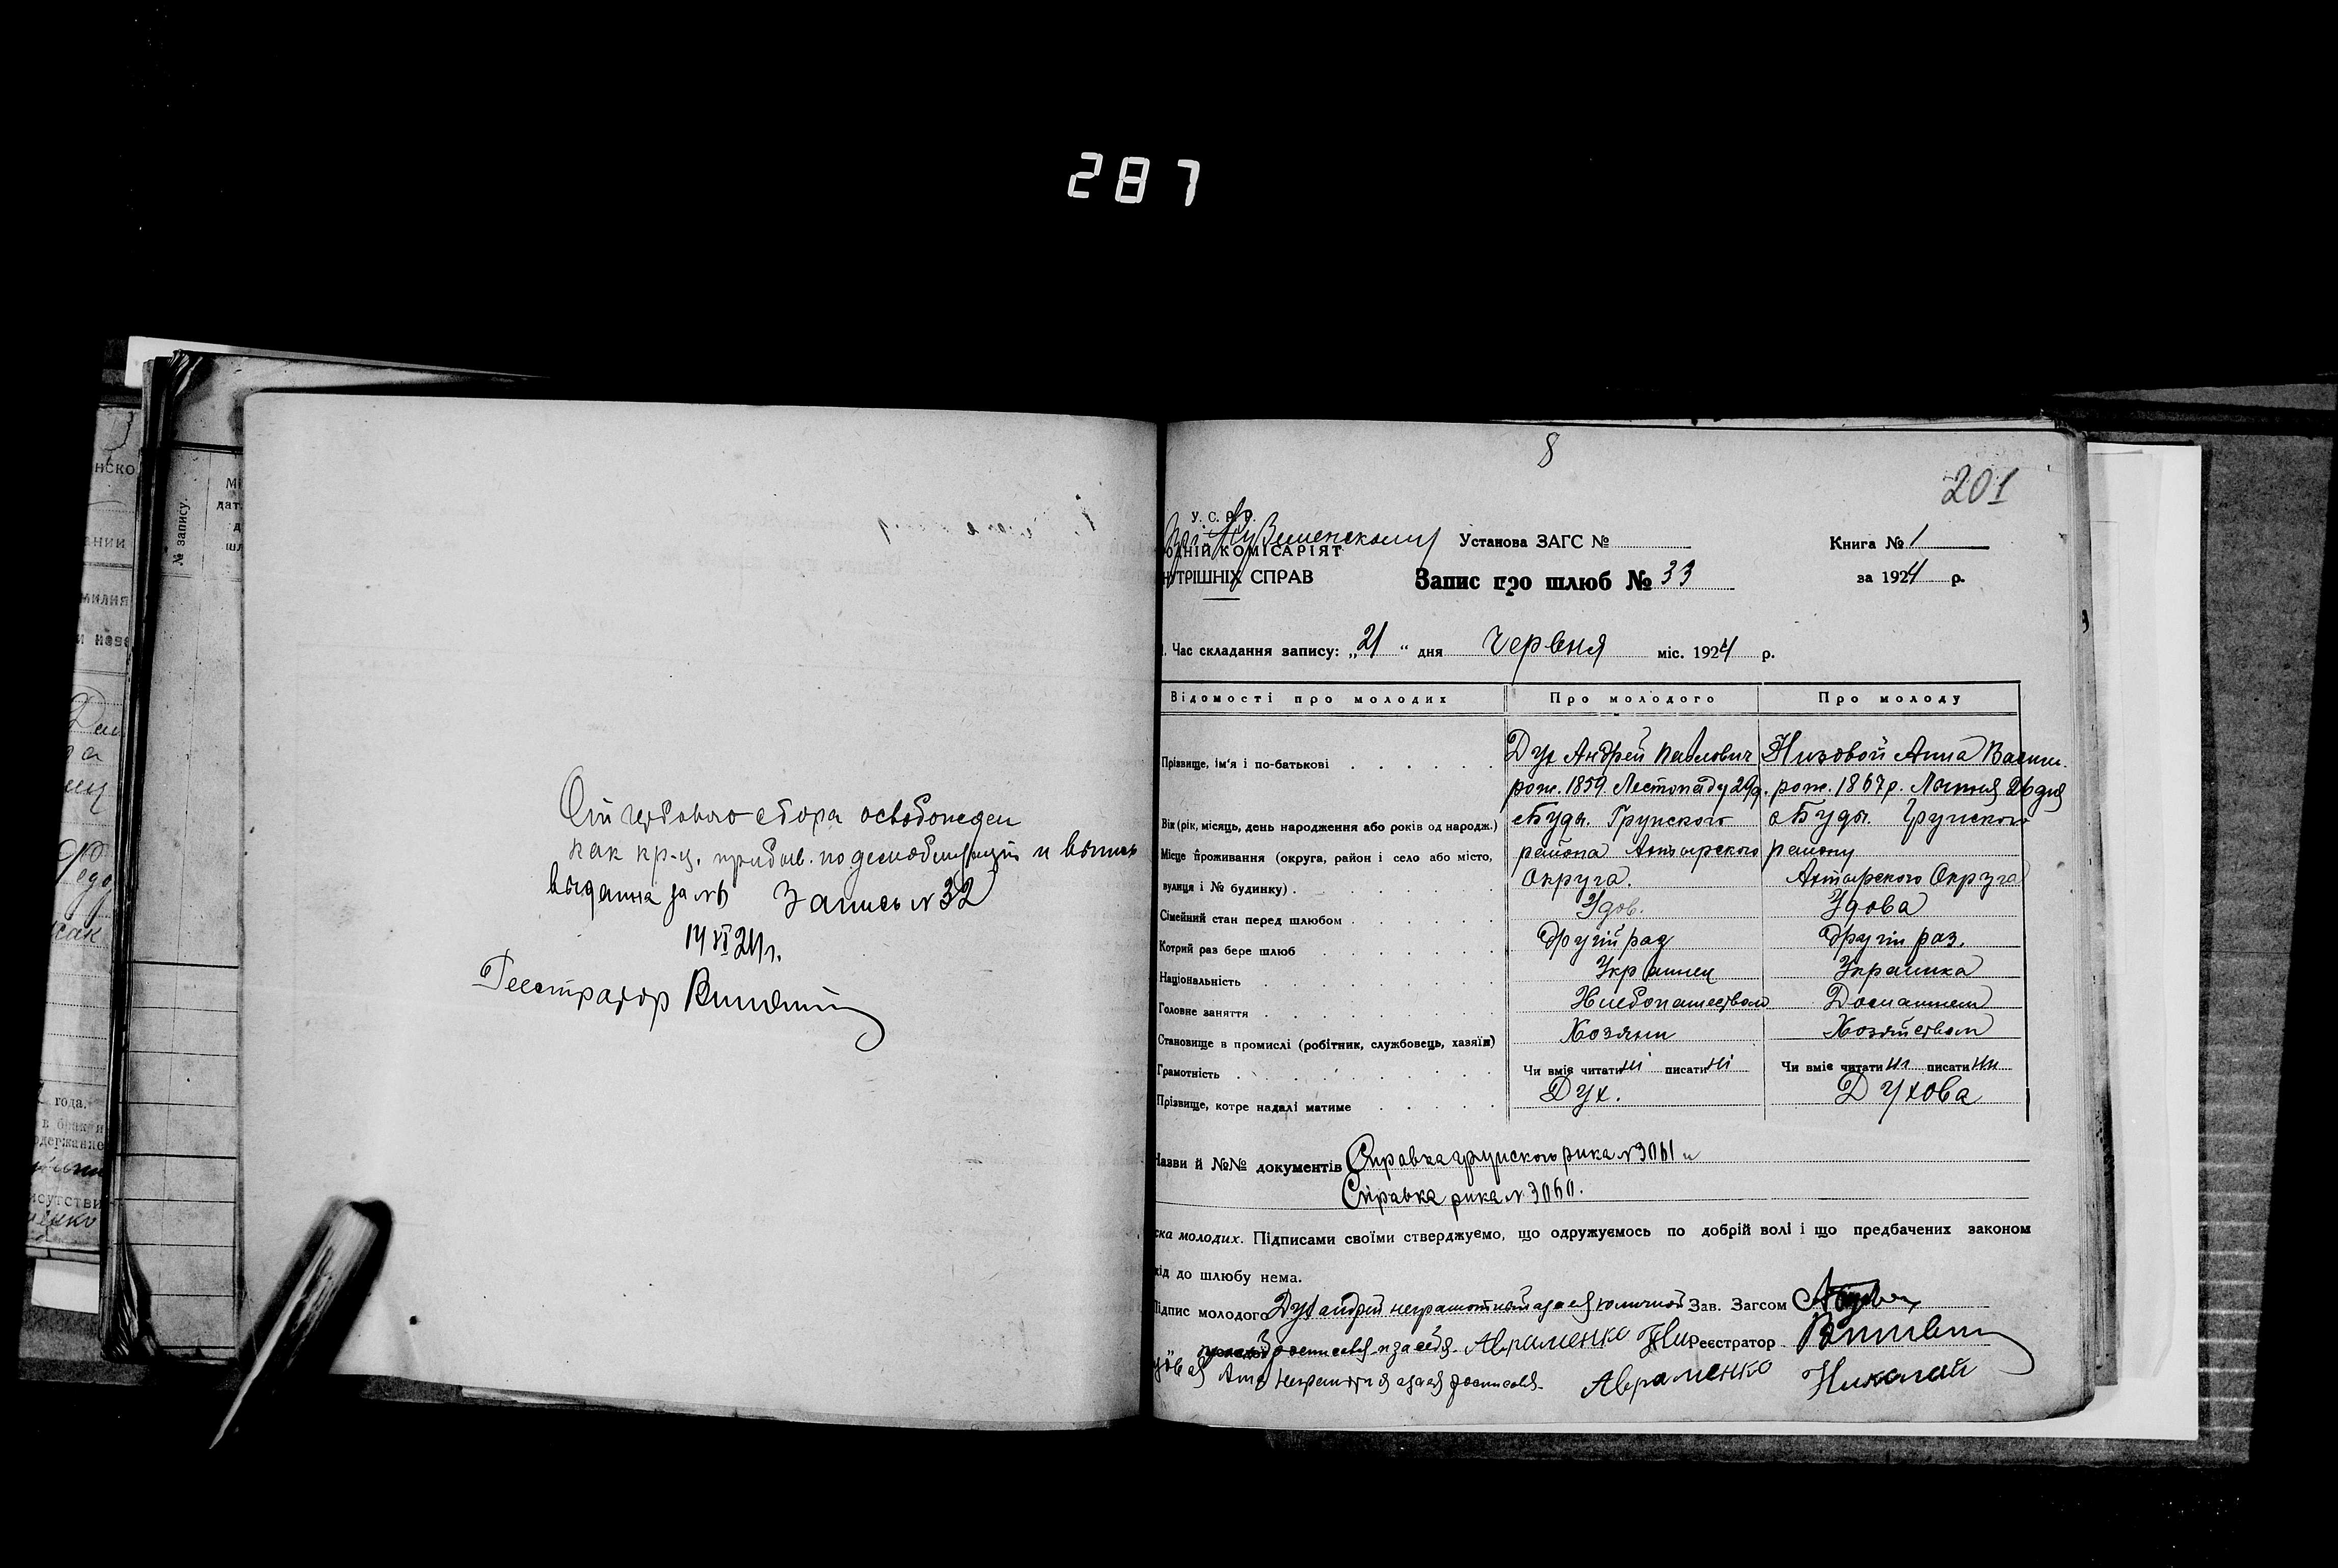 287
нско
нии
милия
и назв
года.
в браки
одержание
исутстви
№ запису.
Мі
дат
д
шл
От гербового сбора освобожден
как кр-ц. прибыв. по демобилизации и выпись
выдана за № Запись № 32
14 VI 24 г.
Геестратор
8
201
У. С. Р. Р.
ОДНІЙ КОМІСАРІЯТ
НУТРІШНІХ СПРАВ
Установа ЗАГС №
Книга № 1
Запис про шлюб № 33
за 1924 р.
Час складання запису: „21“ дня Червня міс. 1924 р.
Відомості про молодих Про молодого Про молоду
Прізвище, ім'я і по-батькові Дух Андрей Павлович Низовой Анна Васил.
рож. 1859. Лестопаду 29д. рож. 1867р. Липня 26 дня
Вік (рік, місяць, день народження або років од народж.) с Буды. Грунского с Буды. Грунского
Місце проживання (округа, район і село або місто, района Ахтырского району
вулиця і № будинку) Округа. Ахтырского Округа
Сімейний стан перед шлюбом Удов. Удова
Котрий раз бере шлюб Другій раз Другій раз.
Національність Украинец Украинка
Головне заняття Хлебопашеством Домашнем
Становище в промислі (робітник, службовець, хазяїн) Хозяин Хозяйством
Грамотність Чи вміє читати ні писати ні Чи вміє читати ни писати ни
Прізвище, котре надалі матиме Дух. Духова
Назви й №№ документів Справка грунского рика № 3061 и
Справка рика № 3060.
ска молодих. Підписами своїми стверджуємо, що одружуємось по добрій волі і що предбачених законом
кід до шлюбу нема.
Підпис молодого Дух андрей неграмотный а за его личной Зав. Загсом
росписался за себя Авраменко Ни Реєстратор
Анна неграмотная а за ея росписался Авраменко Николай